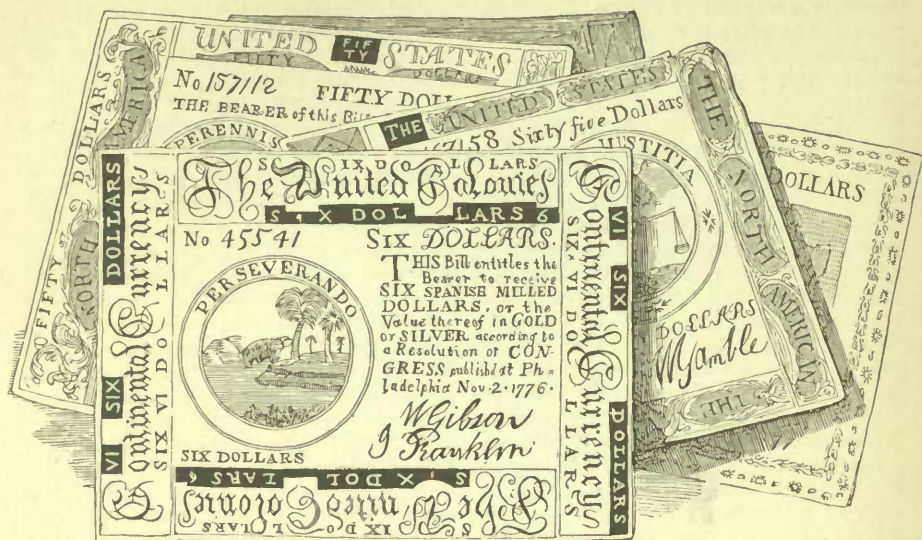 UNITED FIF TY STATES
FIFTY DOLLARS
No 157112
FIFTY DOLL
THE BEARER of this Bill
PERENNIS
FIFTY DOLLARS
NORTH AMERICA
THE UNITED STATES
67158 Sixty five Dollars
JUSTITIA
DOLLARS
WGamble
THE
NORTH
AMERICAN
THE
DOLLARS
S IX DO L LARS
The United Colonies
SIX DOLLARS 6
No 45541
SIX DOLLARS.
THIS Bill entitles the
Bearer to receive
SIX SPANISH MILLED
DOLLARS, or the
Value thereof in GOLD
or SILVER according to
a Resolution of CON-
GRESS published at Ph-
ladelphia Nov. 2. 1776.
PERSEVERANDO
WGibson
J Franklin
SIX DOLLARS
VI SIX DOLLARS
Continental Currency
SIX VI DOLLARS
Continental Currency
SIX, VI DOLLARS
VI SIX DOLLARS
SIX DOLLARS 6
The United Colonies
S IX DO LLARS